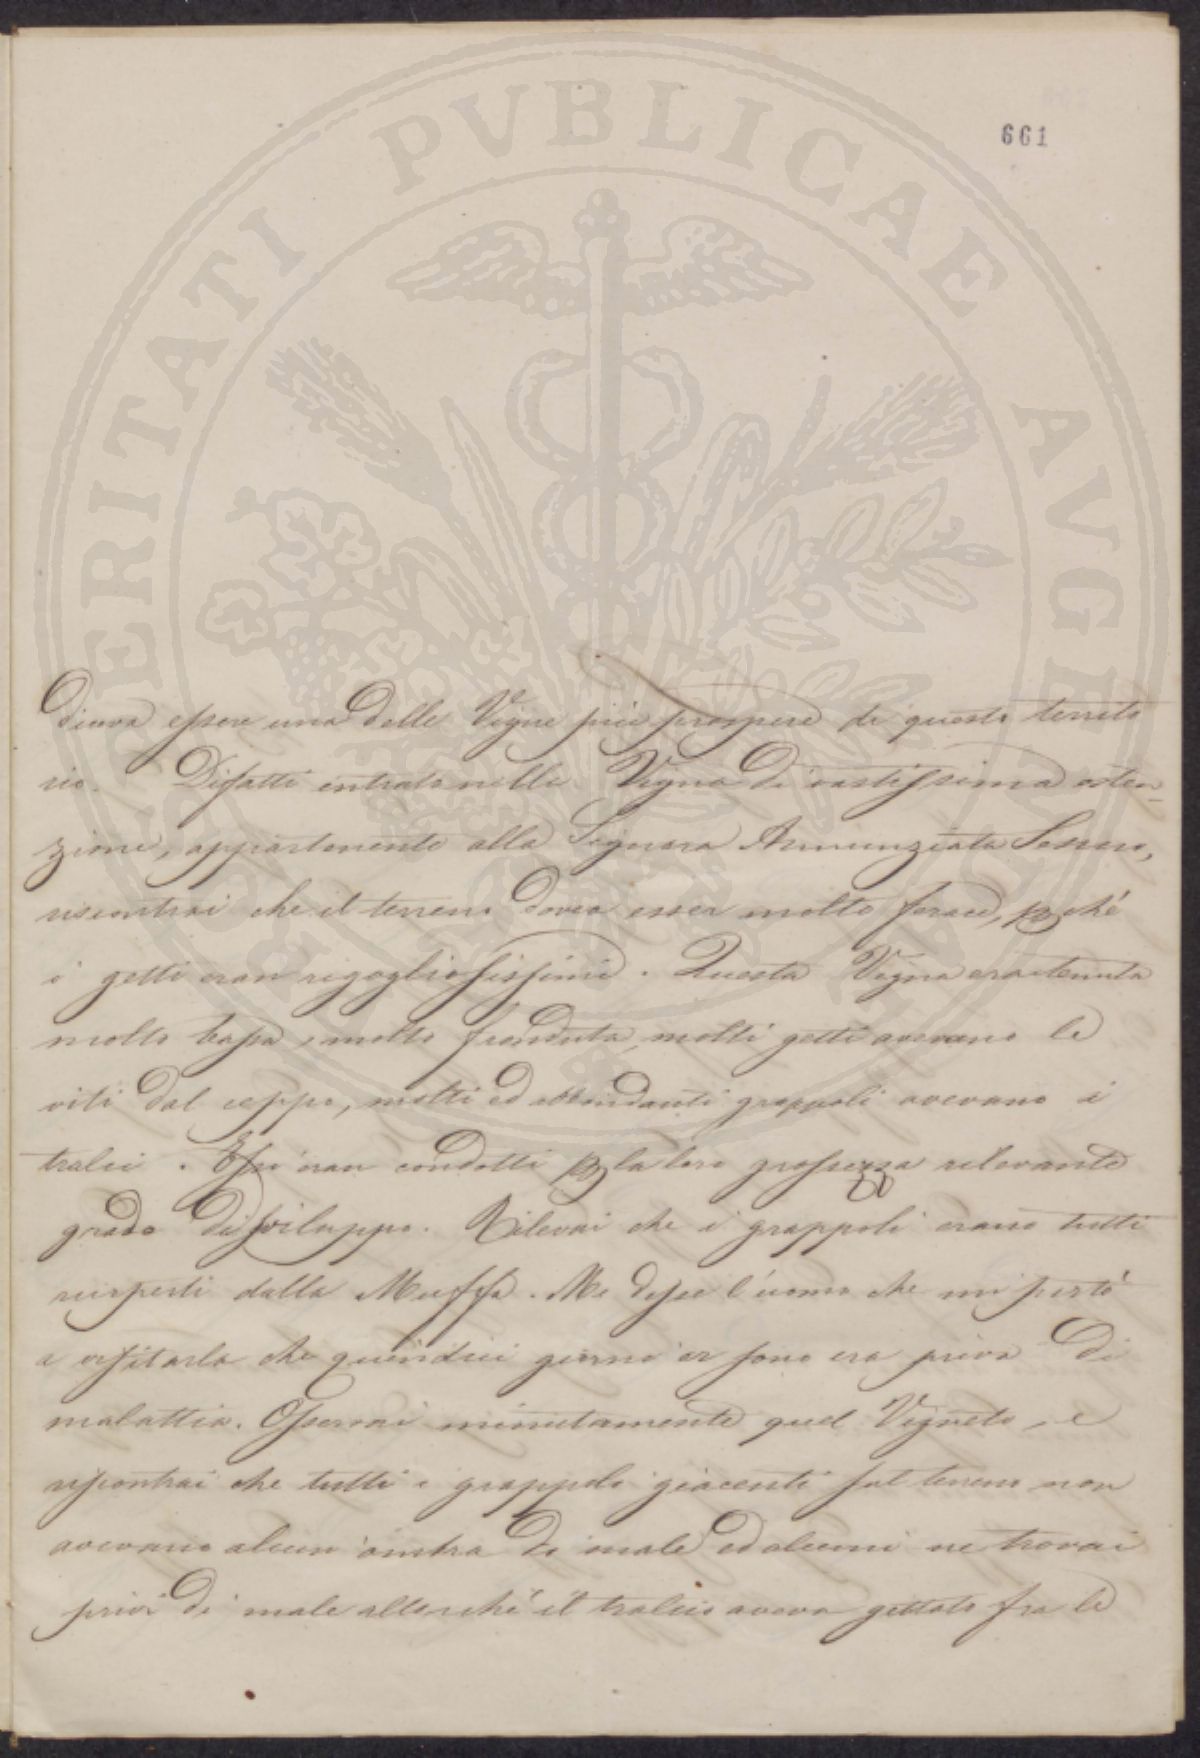 661
PROSPERITATI PVBLICAE AVGENDAE
diceva essere una delle Vigne più prospere di questo territo
rio. Difatti entrato nella Vigna di vastissima esten-
zione, appartenente alla Signora Annunziata
riscontrai che il terreno dovea esser molto ferace, perchè
i getti eran rigogliosissimi. Questa Vigna era tenuta
molto bassa, molto fronduta, molti getti avevano le
viti dal ceppo, molti ed abbondanti grappoli avevano i
tralci. Essi eran condotti per la loro grossezza rilevante
grado di sviluppo. Rilevai che i grappoli erano tutti
aspersi dalla Muffa. Me disse l'uomo che mi portò
a visitarla che quindici giorni or sono era priva di
malattia. Osservai minutamente quel Vigneto, e
riscontrai che tutti i grappoli giacenti sul terreno non
avevano alcun'ombra di male ed alcuni ne trovai
privi di male allorchè il tralcio aveva gettato fra le